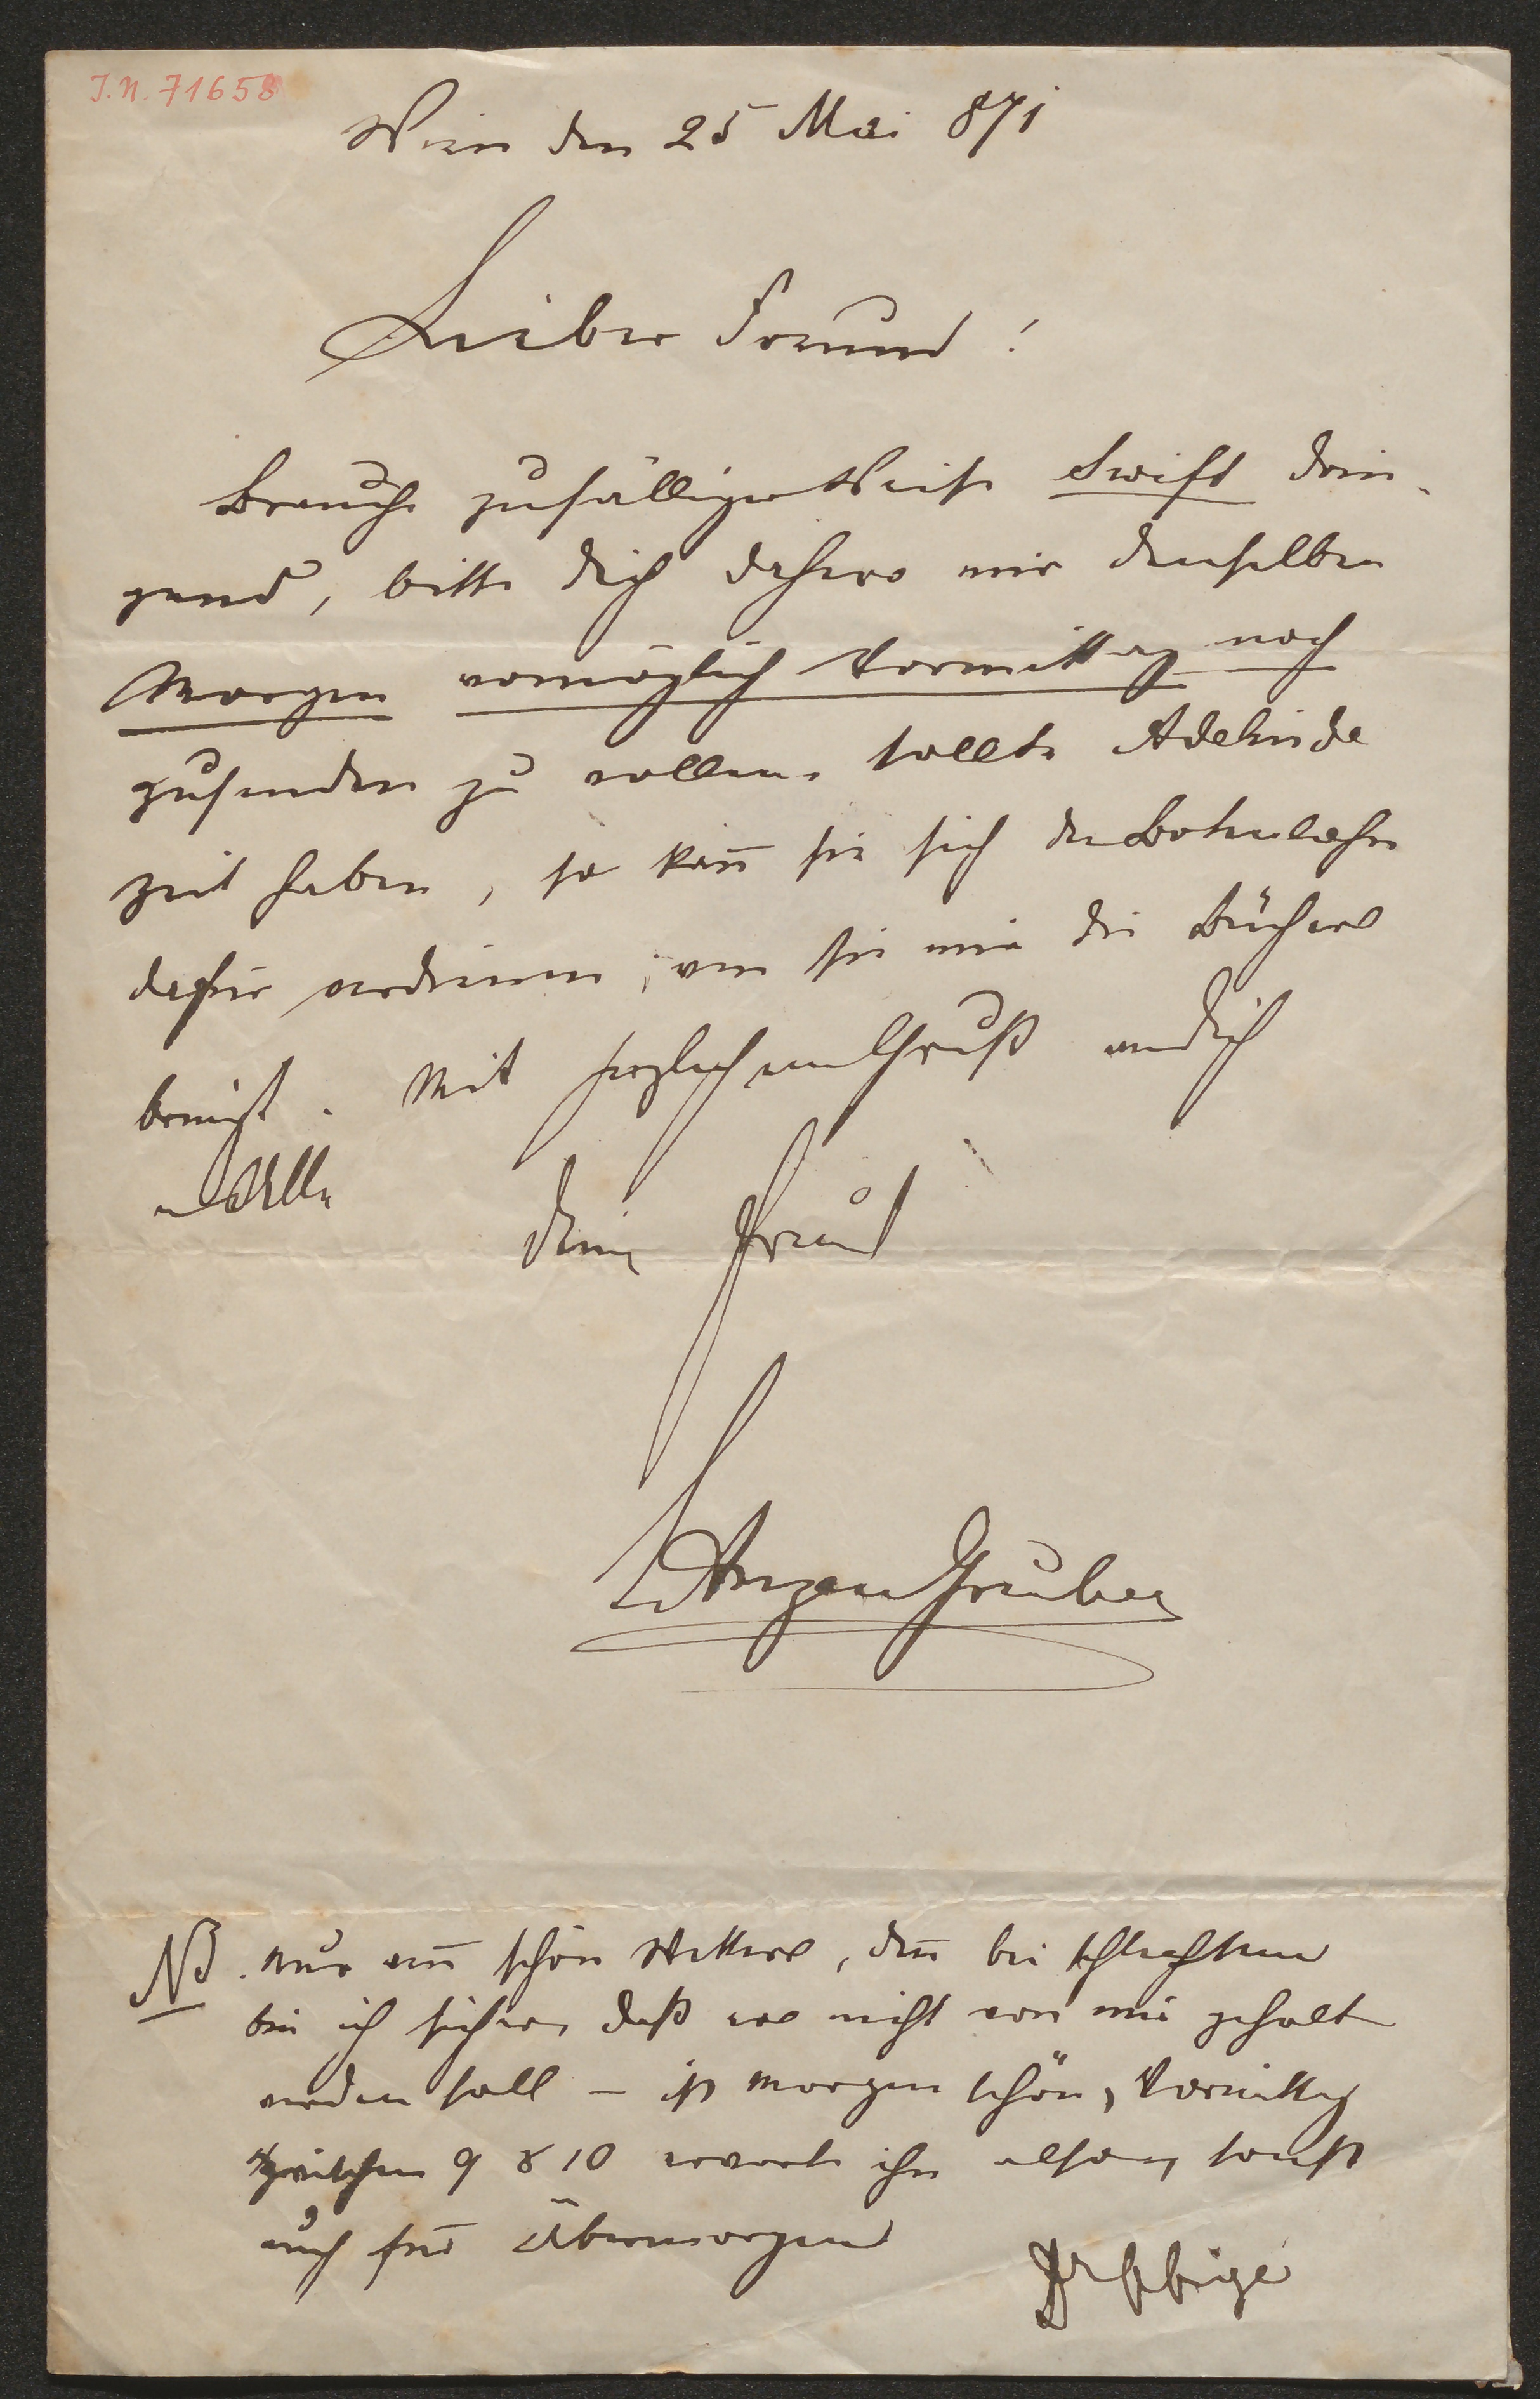 I.N. 71658
Wien den 25 Mai 871
Lieber Freund!
Brauche zufälliger Weise Swift drin-
gend, bitte dich daher mir denselben
Morgen womöglich Vormittag noch
zusenden zu wollen. sollte Adelinde
Zeit haben, so kan̄ sie sich den Botenlohn
dafür verdienen, wen sie mir die Bücher
bringt. Mit herzlichem Gruß an dich
u Alle
dein Freund
L Anzengruber
NB. Nur wen̄ schön Wetter, den̄ bei schlechtem
bin ich sicher, daß es nicht von mir geholt
werden soll – ist morgen schön, Vormittag
zwischen 9 & 10 erwarte ihn also, sonst
auch für Übermorgen